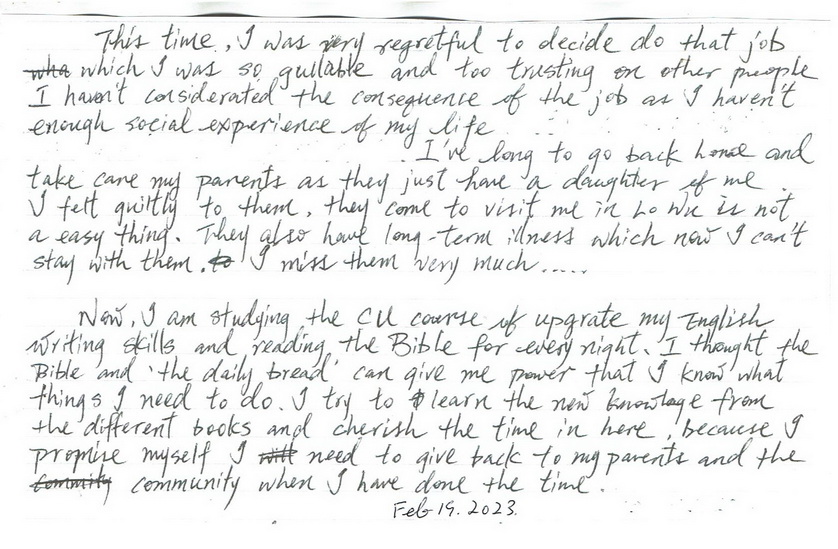 This time, I was very regretful to decide do that job
wha which I was so gullable and too trusting on other preople
I havn't considerated the consequence of the job as I haven't
enough social experience of my life
I've long to go back home and
take care my parents as they just have a daughter of me.
I felt guiltly to them, they come to visit me in Lo Wu is not
a easy thing. They also have long-term illness which now I can't
stay with them. to I miss them very much.....
Now, I am studying the CU course of upgrate my English
writing skills and reading the Bible for every night. I thought the
Bible and 'the daily bread' can give me power that I know what
things I need to do. I try to learn the new knowlage from
the different books and cherish the time in here, because I
promise myself I will need to give back to my parents and the
commnity community when I have done the time.
Feb 19. 2023.